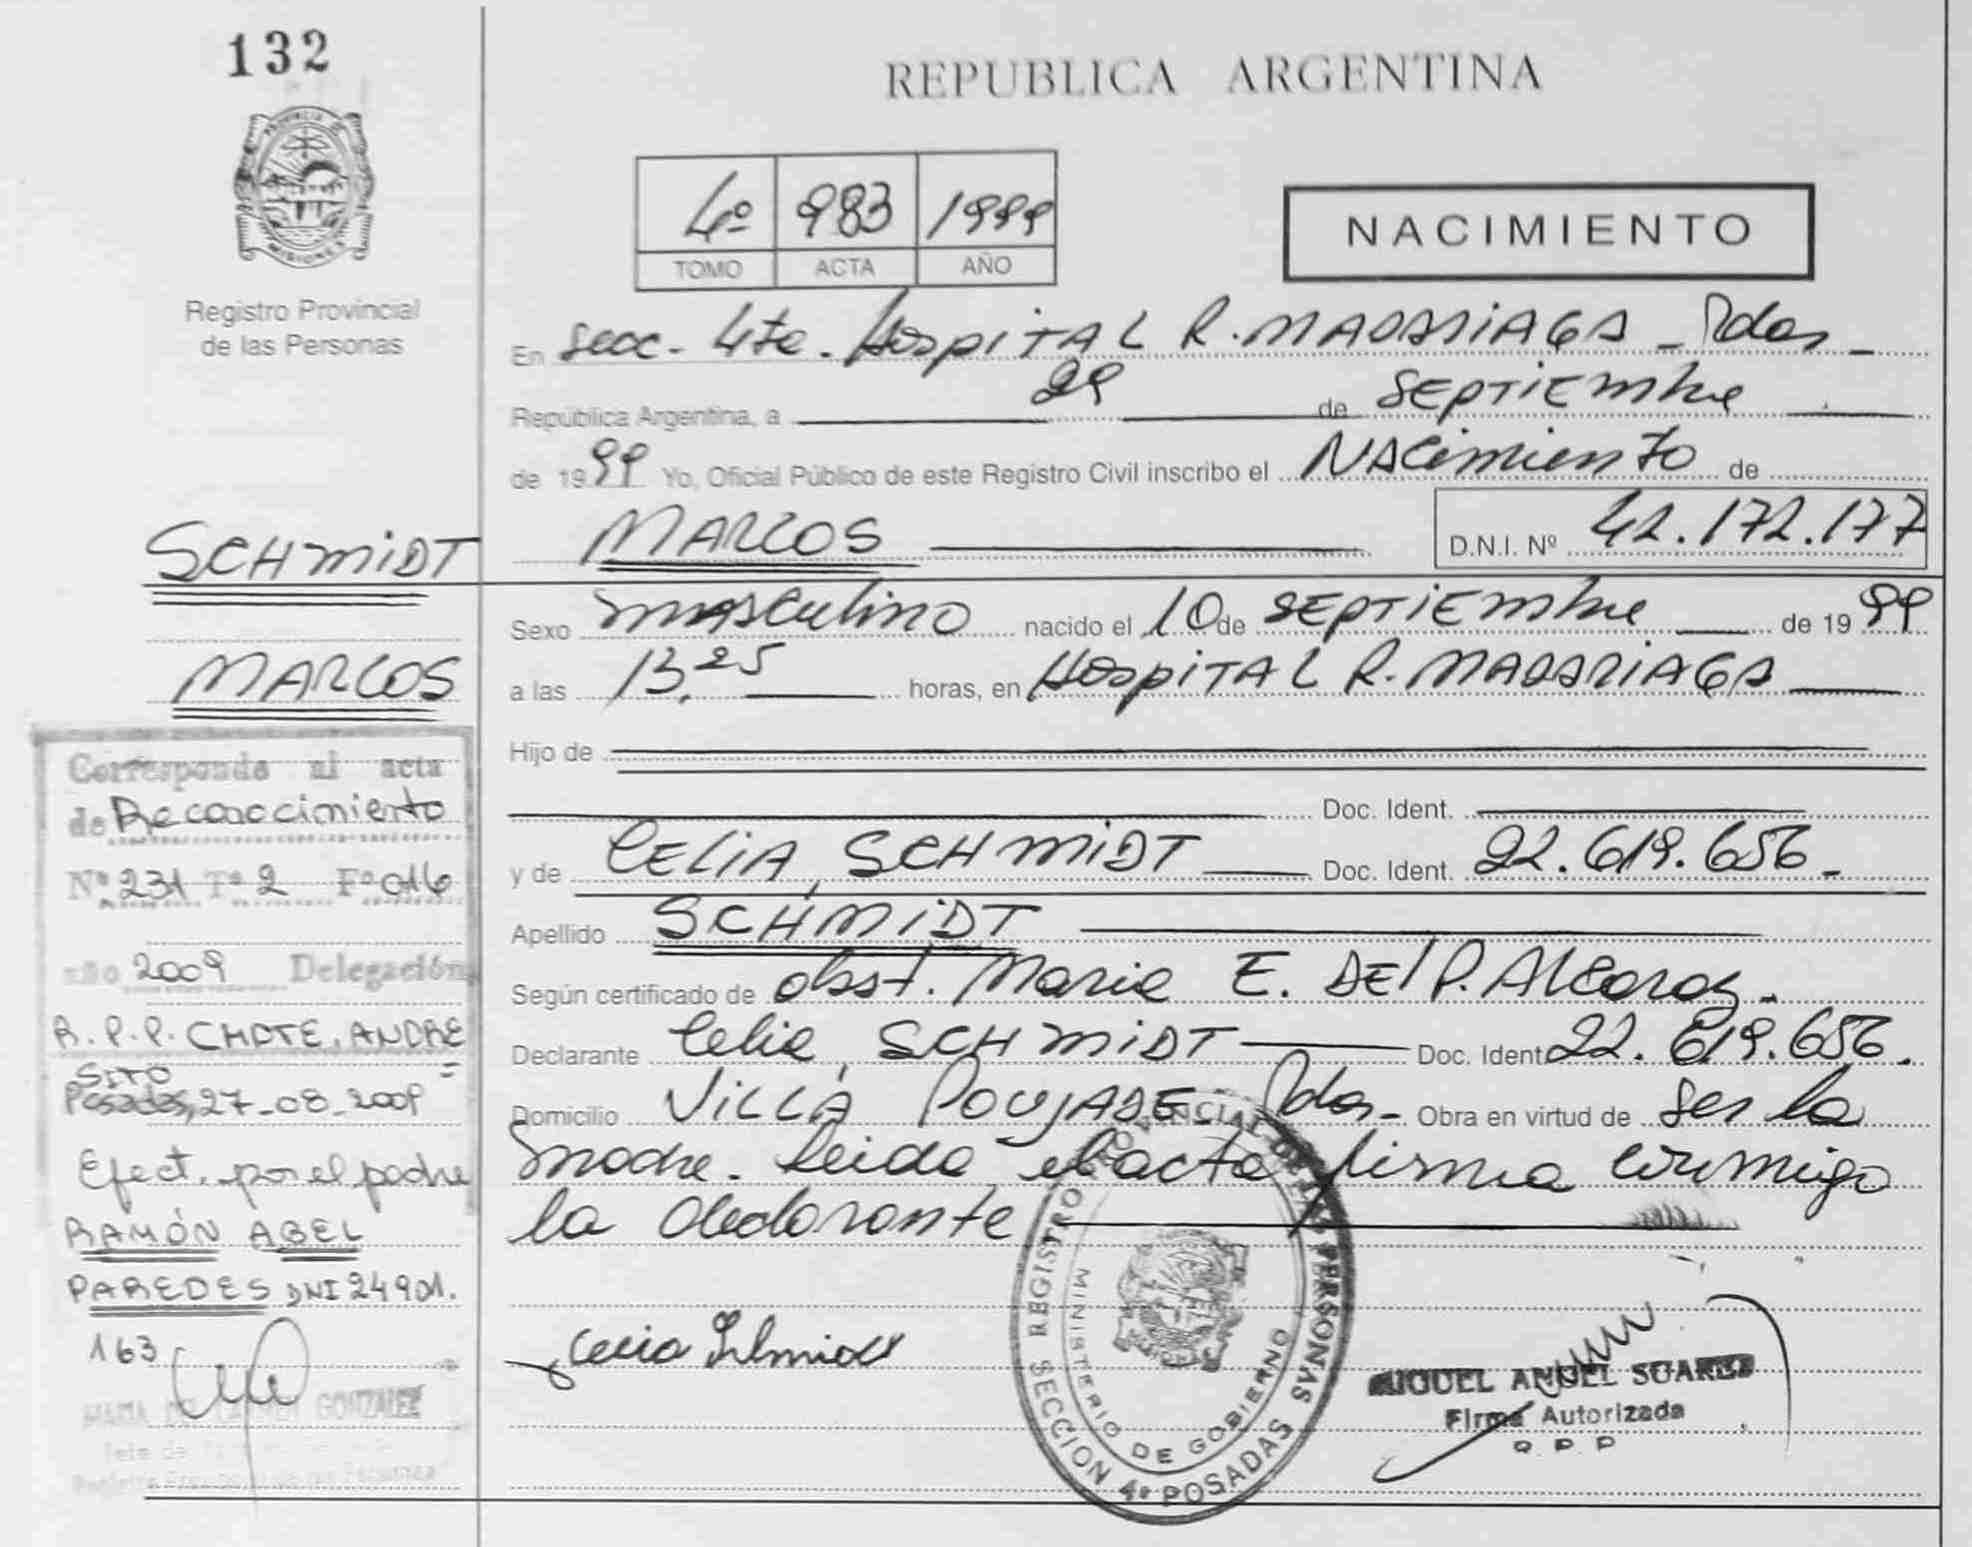 132
PROVINCIA DE
MISIONES
Registro Provincial
de las Personas
REPUBLICA ARGENTINA
4º 983 1999
TOMO ACTA AÑO
NACIMIENTO
En Secc. 4ta. Hospital R. MADARIAGA - Pdas -
República Argentina, a 29 de SEPTIEmbre
de 1999 Yo, Oficial Público de este Registro Civil inscribo el NAcimiento de
MARCOS D.N.I. Nº 42.172.177
Sexo masculino nacido el 10 de SEPTIEmbre de 1999
a las 13,25 horas, en HospiTAL R. MADARIAGA
Hijo de
Doc. Ident.
y de CELIA, SCHMIDT Doc. Ident. 22.619.656.
Apellido SCHMIDT
Según certificado de obst. Maria E. DEl P. Alcaraz.
Declarante Celia, SCHMIDT Doc. Ident. 22.619.656.
Domicilio VILLA POUJADE Pdas - Obra en virtud de ser la
madre. Leida el acta firma conmigo
la declarante
Celia Schmidt
REGISTRO PROVINCIAL DE LAS PERSONAS
MINISTERIO DE GOBIERNO
SECCION 4º POSADAS
MIGUEL ANGEL SUAREZ
Firma Autorizada
R P P
SCHMIDT
MARCOS
Corresponde al acta
de Reconocimiento
Nº 231 Tº 2 Fº 016
año 2009 Delegación
R.P.P. CHDTE. ANDRE
SITO =
Posadas, 27-08-2009
Efect. por el padre
RAMÓN ABEL
PAREDES DNI 24901.
163
GONZALEZ